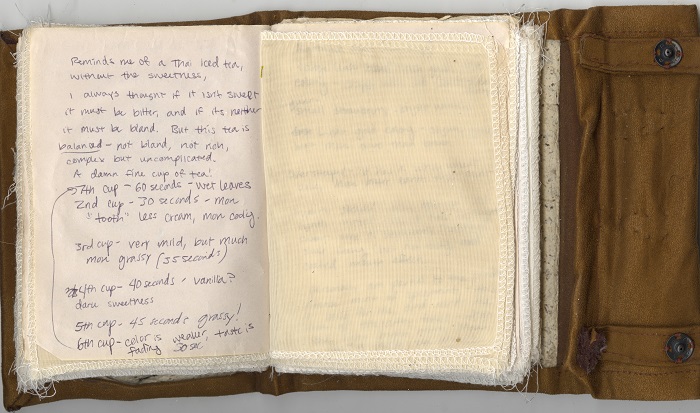 Reminds me of a Thai iced tea,
without the sweetness,
I always thought if it isn't sweet
it must be bitter, and if its neither
it must be bland. But this tea is
balanced - not bland, not rich,
complex but uncomplicated.
A damn fine cup of tea!
7th cup - 60 seconds - wet leaves
2nd cup - 30 seconds - more
"tooth" less cream, more
3rd cup - very mild, but much
more grassy (35 seconds)
4th cup - 40 seconds - vanilla?
sweetness
5th cup - 45 seconds grassy!
6th cup - color is weaker, taste is
fading 50 sec